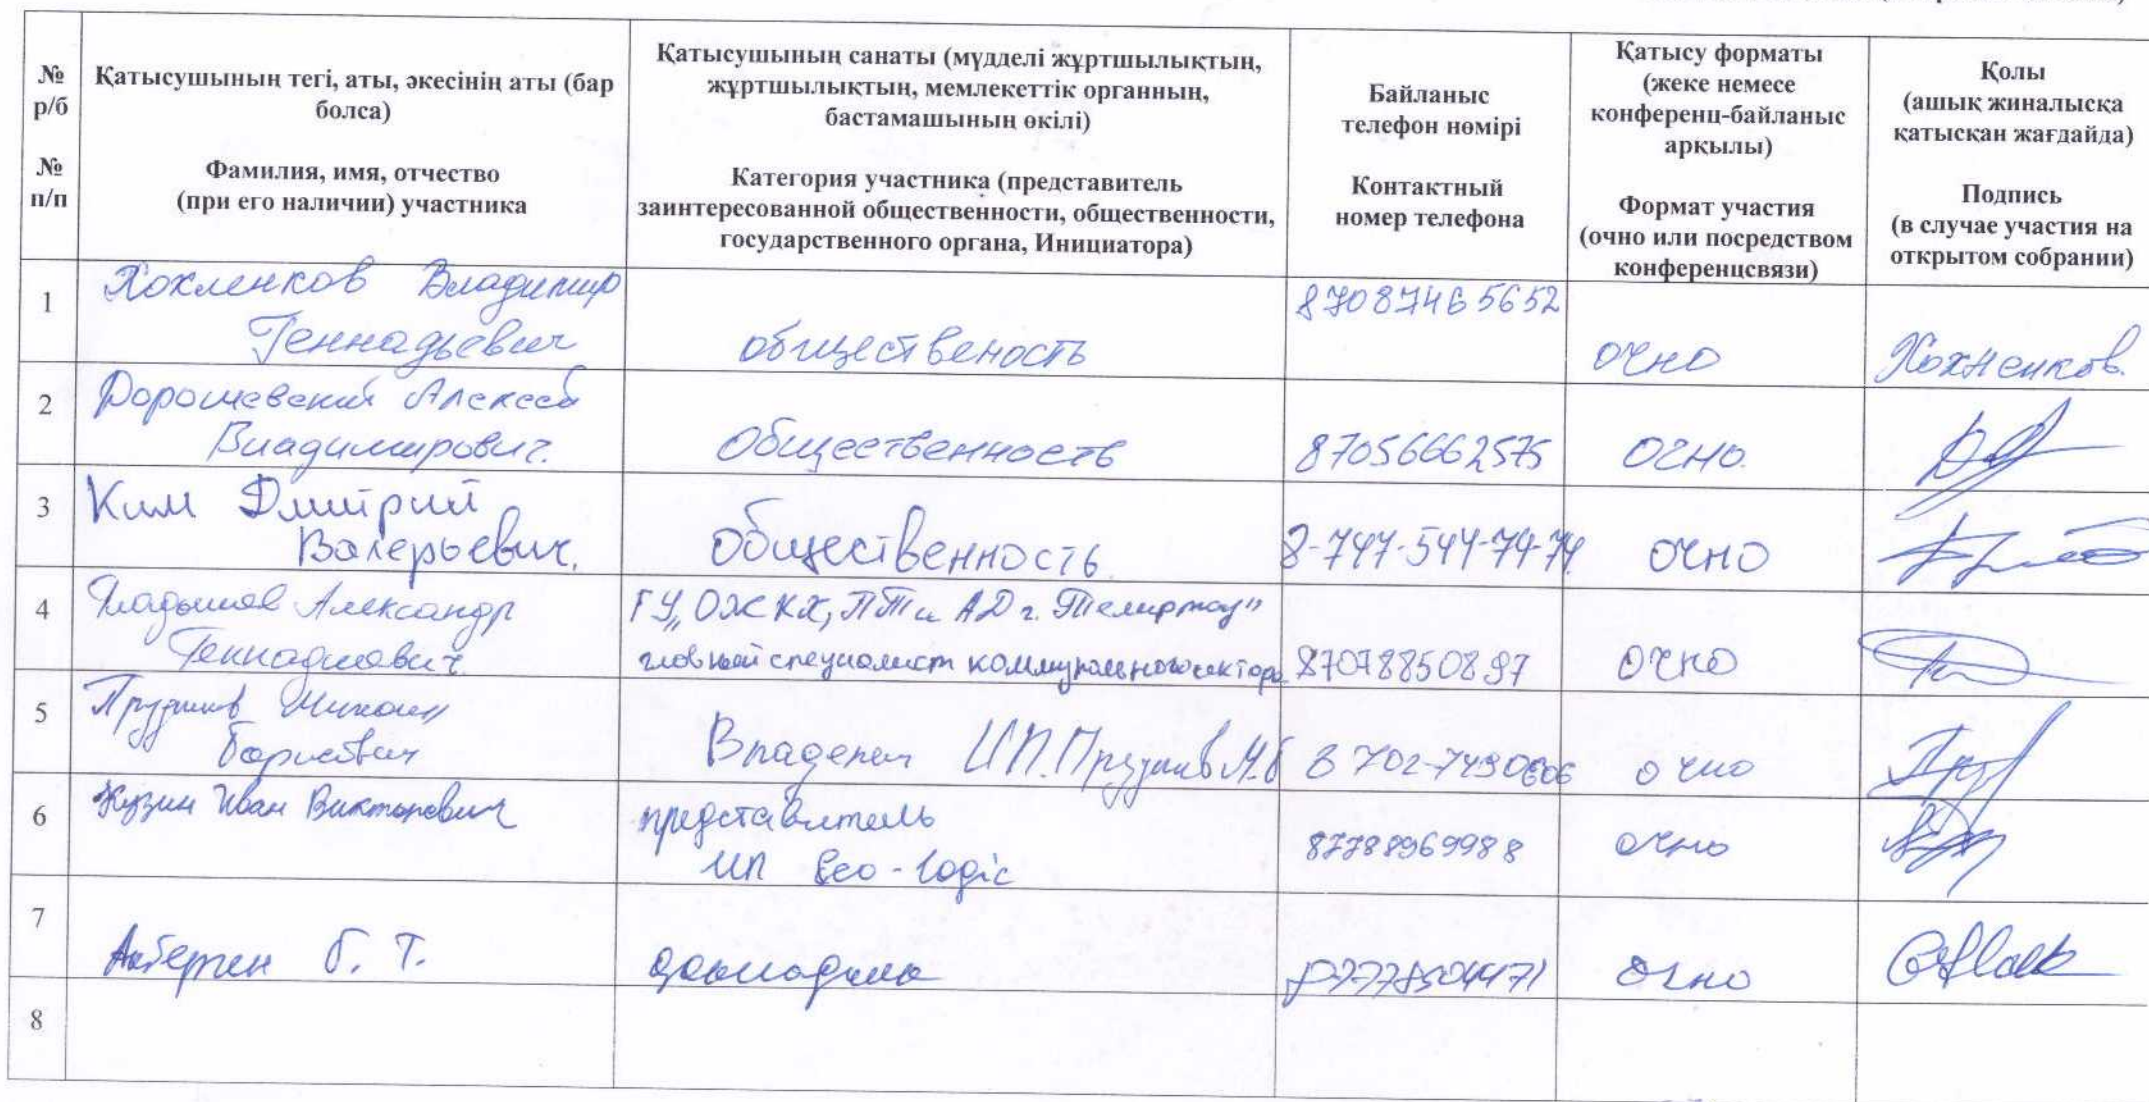 №
р/б
№
п/п
Қатысушының тегі, аты, әкесінің аты (бар
болса)
Фамилия, имя, отчество
(при его наличии) участника
Қатысушының санаты (мүдделі жұртшылықтың,
жұртшылықтың, мемлекеттік органның,
бастамашының өкілі)
Категория участника (представитель
заинтересованной общественности, общественности,
государственного органа, Инициатора)
Байланыс
телефон нөмірі
Контактный
номер телефона
Қатысу форматы
(жеке немесе
конференц-байланыс
арқылы)
Формат участия
(очно или посредством
конференцсвязи)
Қолы
(ашық жиналысқа
қатысқан жағдайда)
Подпись
(в случае участия на
открытом собрании)
1
Хохленков Владимир
Геннадьевич
обществе­ность
87087465652
очно
2
Дорошевский Алексей
Владимирович.
Общественность
87056662575
очно.
3
Ким Дмитрий
Валерьевич.
Общественность
8-747-544-74-74.
очно
4
Александр
Геннадиевич
ГУ "ОЖКХ, ПТ и АД г. Темиртау"
главный специалист коммунального сектора
87078850897
очно
5
Михаил
Борисович
Владелец ИП.
очно
6
Иван Викторович
представитель
ИП Eco-logic
87788969988
очно
7
Б. Т.
очно
8